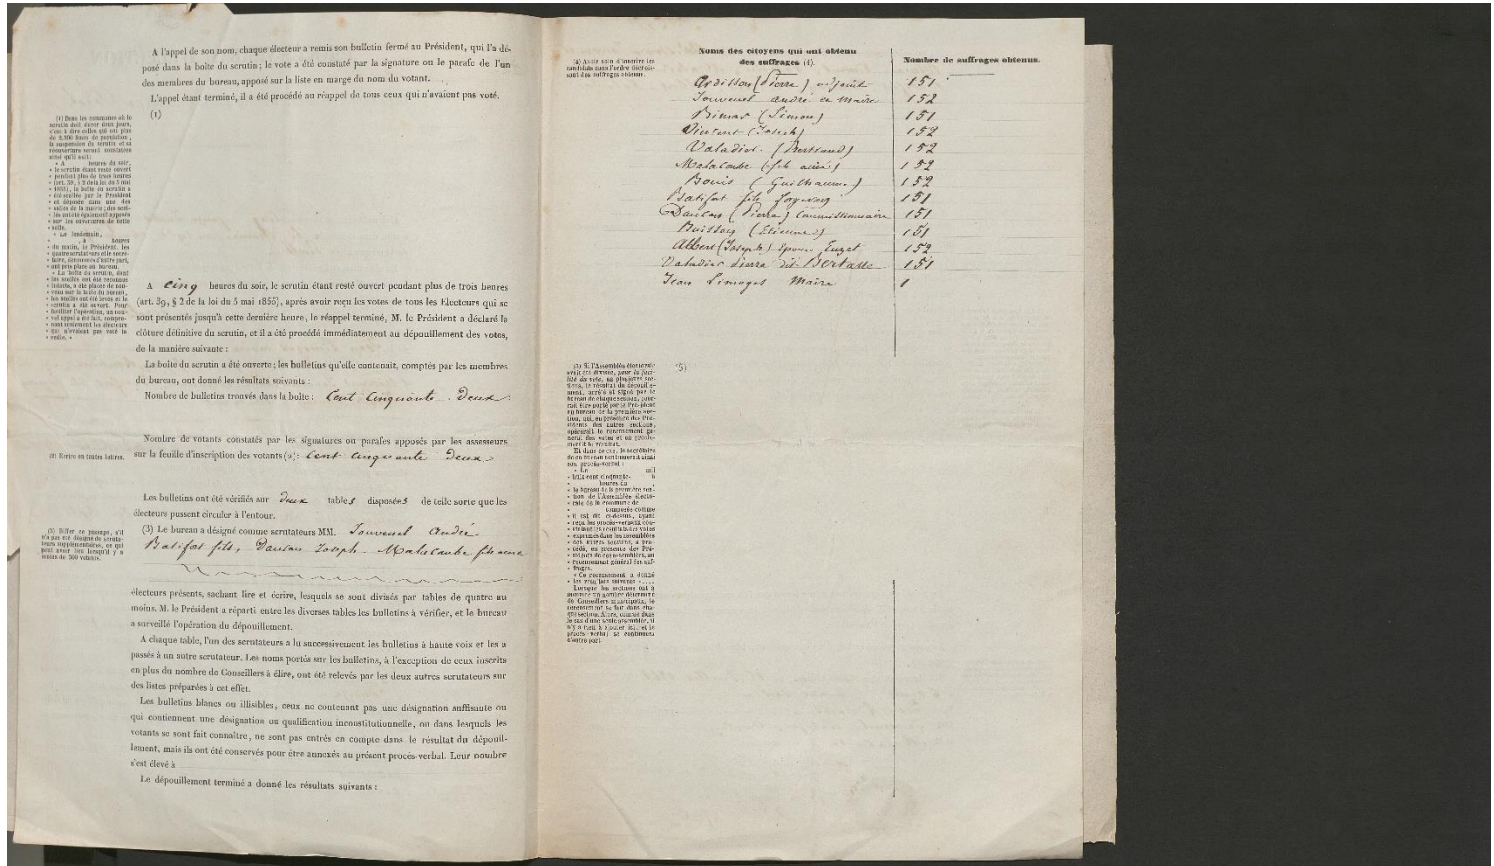 A l'appel de son nom, chaque électeur a remis son bulletin fermé au Président, qui l'a dé-
posé dans la boîte du scrutin ; le vote a été constaté par la signature ou le parafe de l'un
des membres du bureau, apposé sur la liste en marge du nom du votant.
L'appel étant terminé, il a été procédé au réappel de tous ceux qui n'avaient pas voté.
(1)
(1) Dans les communes où le
scrutin doit durer deux jours,
c'est à dire celles qui ont plus
de 2,500 âmes de population,
la suspension du scrutin et sa
réouverture seront constatées
ainsi qu'il suit:
« A heures du soir,
« le scrutin étant resté ouvert
« pendant plus de trois heures
« (art. 39, § 2 de la loi du 5 mai
« 1855), la boîte du scrutin a
« été scellée par le Président
« et déposée dans une des
« salles de la mairie; des scel-
« lés ont été également apposés
« sur les ouvertures de cette
« salle.
« Le lendemain,
« , à heures
« du matin, le Président, les
« quatre scrutateurs et le secré-
« taire, dénommés d'autre part,
« ont pris place au bureau.
« La boîte du scrutin, dont
« les scellés ont été reconnus
« intacts, a été placée de nou-
« veau sur la table du bureau,
« les scellés ont été levés et le
« scrutin a été ouvert. Pour
« faciliter l'opération, un nou-
« vel appel a été fait, compre-
« nant seulement les électeurs
« qui n'avaient pas voté la
« veille. »
A cinq heures du soir, le scrutin étant resté ouvert pendant plus de trois heures
(art. 39, § 2 de la loi du 5 mai 1855), après avoir reçu les votes de tous les Electeurs qui se
sont présentés jusqu'à cette dernière heure, le réappel terminé, M. le Président a déclaré la
clôture définitive du scrutin, et il a été procédé immédiatement au dépouillement des votes,
de la manière suivante :
La boîte du scrutin a été ouverte ; les bulletins qu'elle contenait, comptés par les membres
du bureau, ont donné les résultats suivants :
Nombre de bulletins trouvés dans la boîte : Cent Cinquante Deux
Nombre de votants constatés par les signatures ou parafes apposés par les assesseurs
(2) Ecrire en toutes lettres.
sur la feuille d'inscription des votants (2): Cent Cinquante Deux
Les bulletins ont été vérifiés sur deux tables disposées de telle sorte que les
électeurs pussent circuler à l'entour.
(3) Biffer ce passage, s'il
n'a pas été désigné de scruta-
teurs supplémentaires, ce qui
peut avoir lieu lorsqu'il y a
moins de 300 votants.
(3) Le bureau a désigné comme scrutateurs MM. Jouvenel André
Batifort fils, Dautan Joseph - Malacombe fils ainé
électeurs présents, sachant lire et écrire, lesquels se sont divisés par tables de quatre au
moins. M. le Président a réparti entre les diverses tables les bulletins à vérifier, et le bureau
a surveillé l'opération du dépouillement.
A chaque table, l'un des scrutateurs a lu successivement les bulletins à haute voix et les a
passés à un autre scrutateur. Les noms portés sur les bulletins, à l'exception de ceux inscrits
en plus du nombre de Conseillers à élire, ont été relevés par les deux autres scrutateurs sur
des listes préparées à cet effet.
Les bulletins blancs ou illisibles, ceux ne contenant pas une désignation suffisante ou
qui contiennent une désignation ou qualification inconstitutionnelle, ou dans lesquels les
votants se sont fait connaître, ne sont pas entrés en compte dans le résultat du dépouil-
lement, mais ils ont été conservés pour être annexés au présent procès-verbal. Leur nombre
s'est élevé à
Le dépouillement terminé a donné les résultats suivants :
(4) Avoir soin d'inscrire les
candidats dans l'ordre décrois-
sant des suffrages obtenus.
Noms des citoyens qui ont obtenu
des suffrages (4).
Nombre de suffrages obtenus.
Ardisson (Pierre) adjoint 151
Jouvenel andré ex Maire 152
Rimas (Simon) 151
Vincent (Joseph) 152
Valadier (Bertrand) 152
Malacombe (fils ainé) 152
Bouis (Guilhaume) 152
Batifort fils 151
Dautan (Pierre) Commissionnaire 151
Buisson (Etienne) 151
Albert (Joseph) époux Euzet 152
Valadier Pierre dit Bertasse 151
Jean Limoges Maire 1
(5) Si l'Assemblée électorale
avait été divisée, pour la faci-
lité du vote, en plusieurs sec-
tions, le résultat du dépouille-
ment, arrêté et signé par le
bureau de chaque section, pour-
rait être porté par le Président
au bureau de la première sec-
tion, qui, en présence des Pré-
sidents des autres sections,
opérerait le recensement gé-
néral des votes et en procla-
merait le résultat.
(5)
Et dans ce cas, le secrétaire
« Le mil
« huit cent cinquante-
« heures du ,
« le bureau de la première sec-
« tion de l'Assemblée électo-
« rale de la commune de
« composée comme
« il est dit ci-dessus, ayant
« reçu les procès-verbaux con-
« statant les résultats des votes
« exprimés dans les assemblées
« des autres sections, a pro-
« cédé, en présence des Pré-
« sidents de ces assemblées, au
« recensement général des suf-
« frages.
« Ce recensement a donné
« les résultats suivants : ....
Lorsque les sections ont à
nommer un nombre déterminé
de Conseillers municipaux, le
recensement se fait dans cha-
que section. Alors, comme dans
le cas d'une seule assemblée, il
n'y a rien à ajouter ici, et le
procès-verbal se continuera
d'autre part.